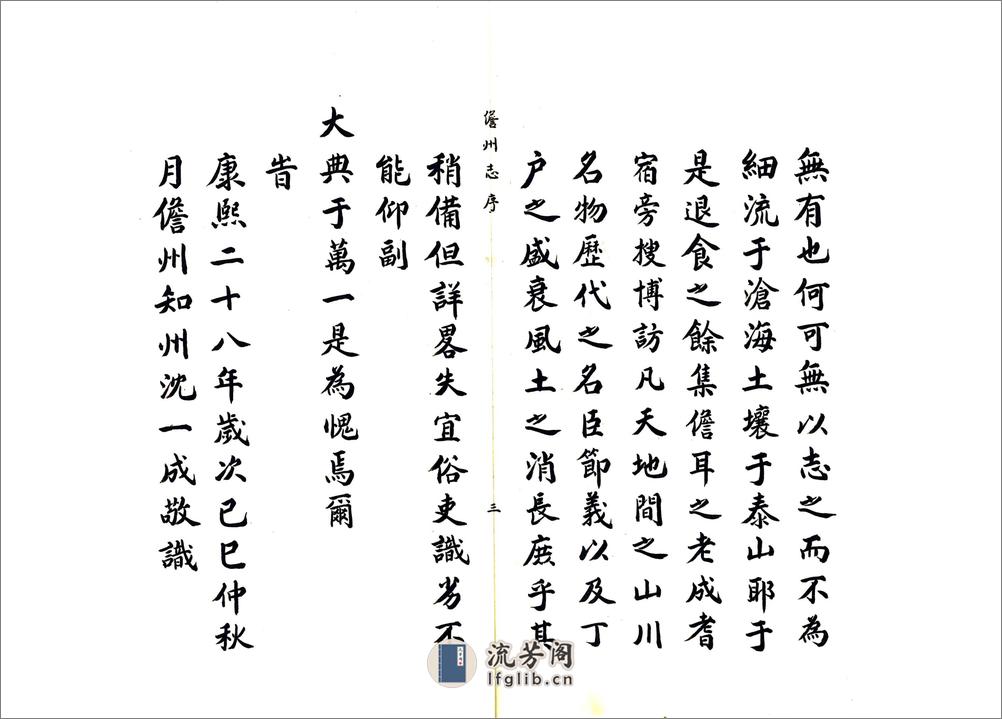 無有也何可無以志之而不為
細流于滄海土壤于泰山耶于
是退食之餘集儋耳之老成耆
宿旁搜博訪凡天地間之山川
名物歷代之名臣節義以及丁
户之盛衰風土之消長庻乎其
儋州志序
三
稍備但詳畧失宜俗吏識劣不
能仰副
大典于萬一是為愧焉爾
旹
康熙二十八年歲次己巳仲秋
月儋州知州沈一成敬識
流芳阁
lfglib.cn